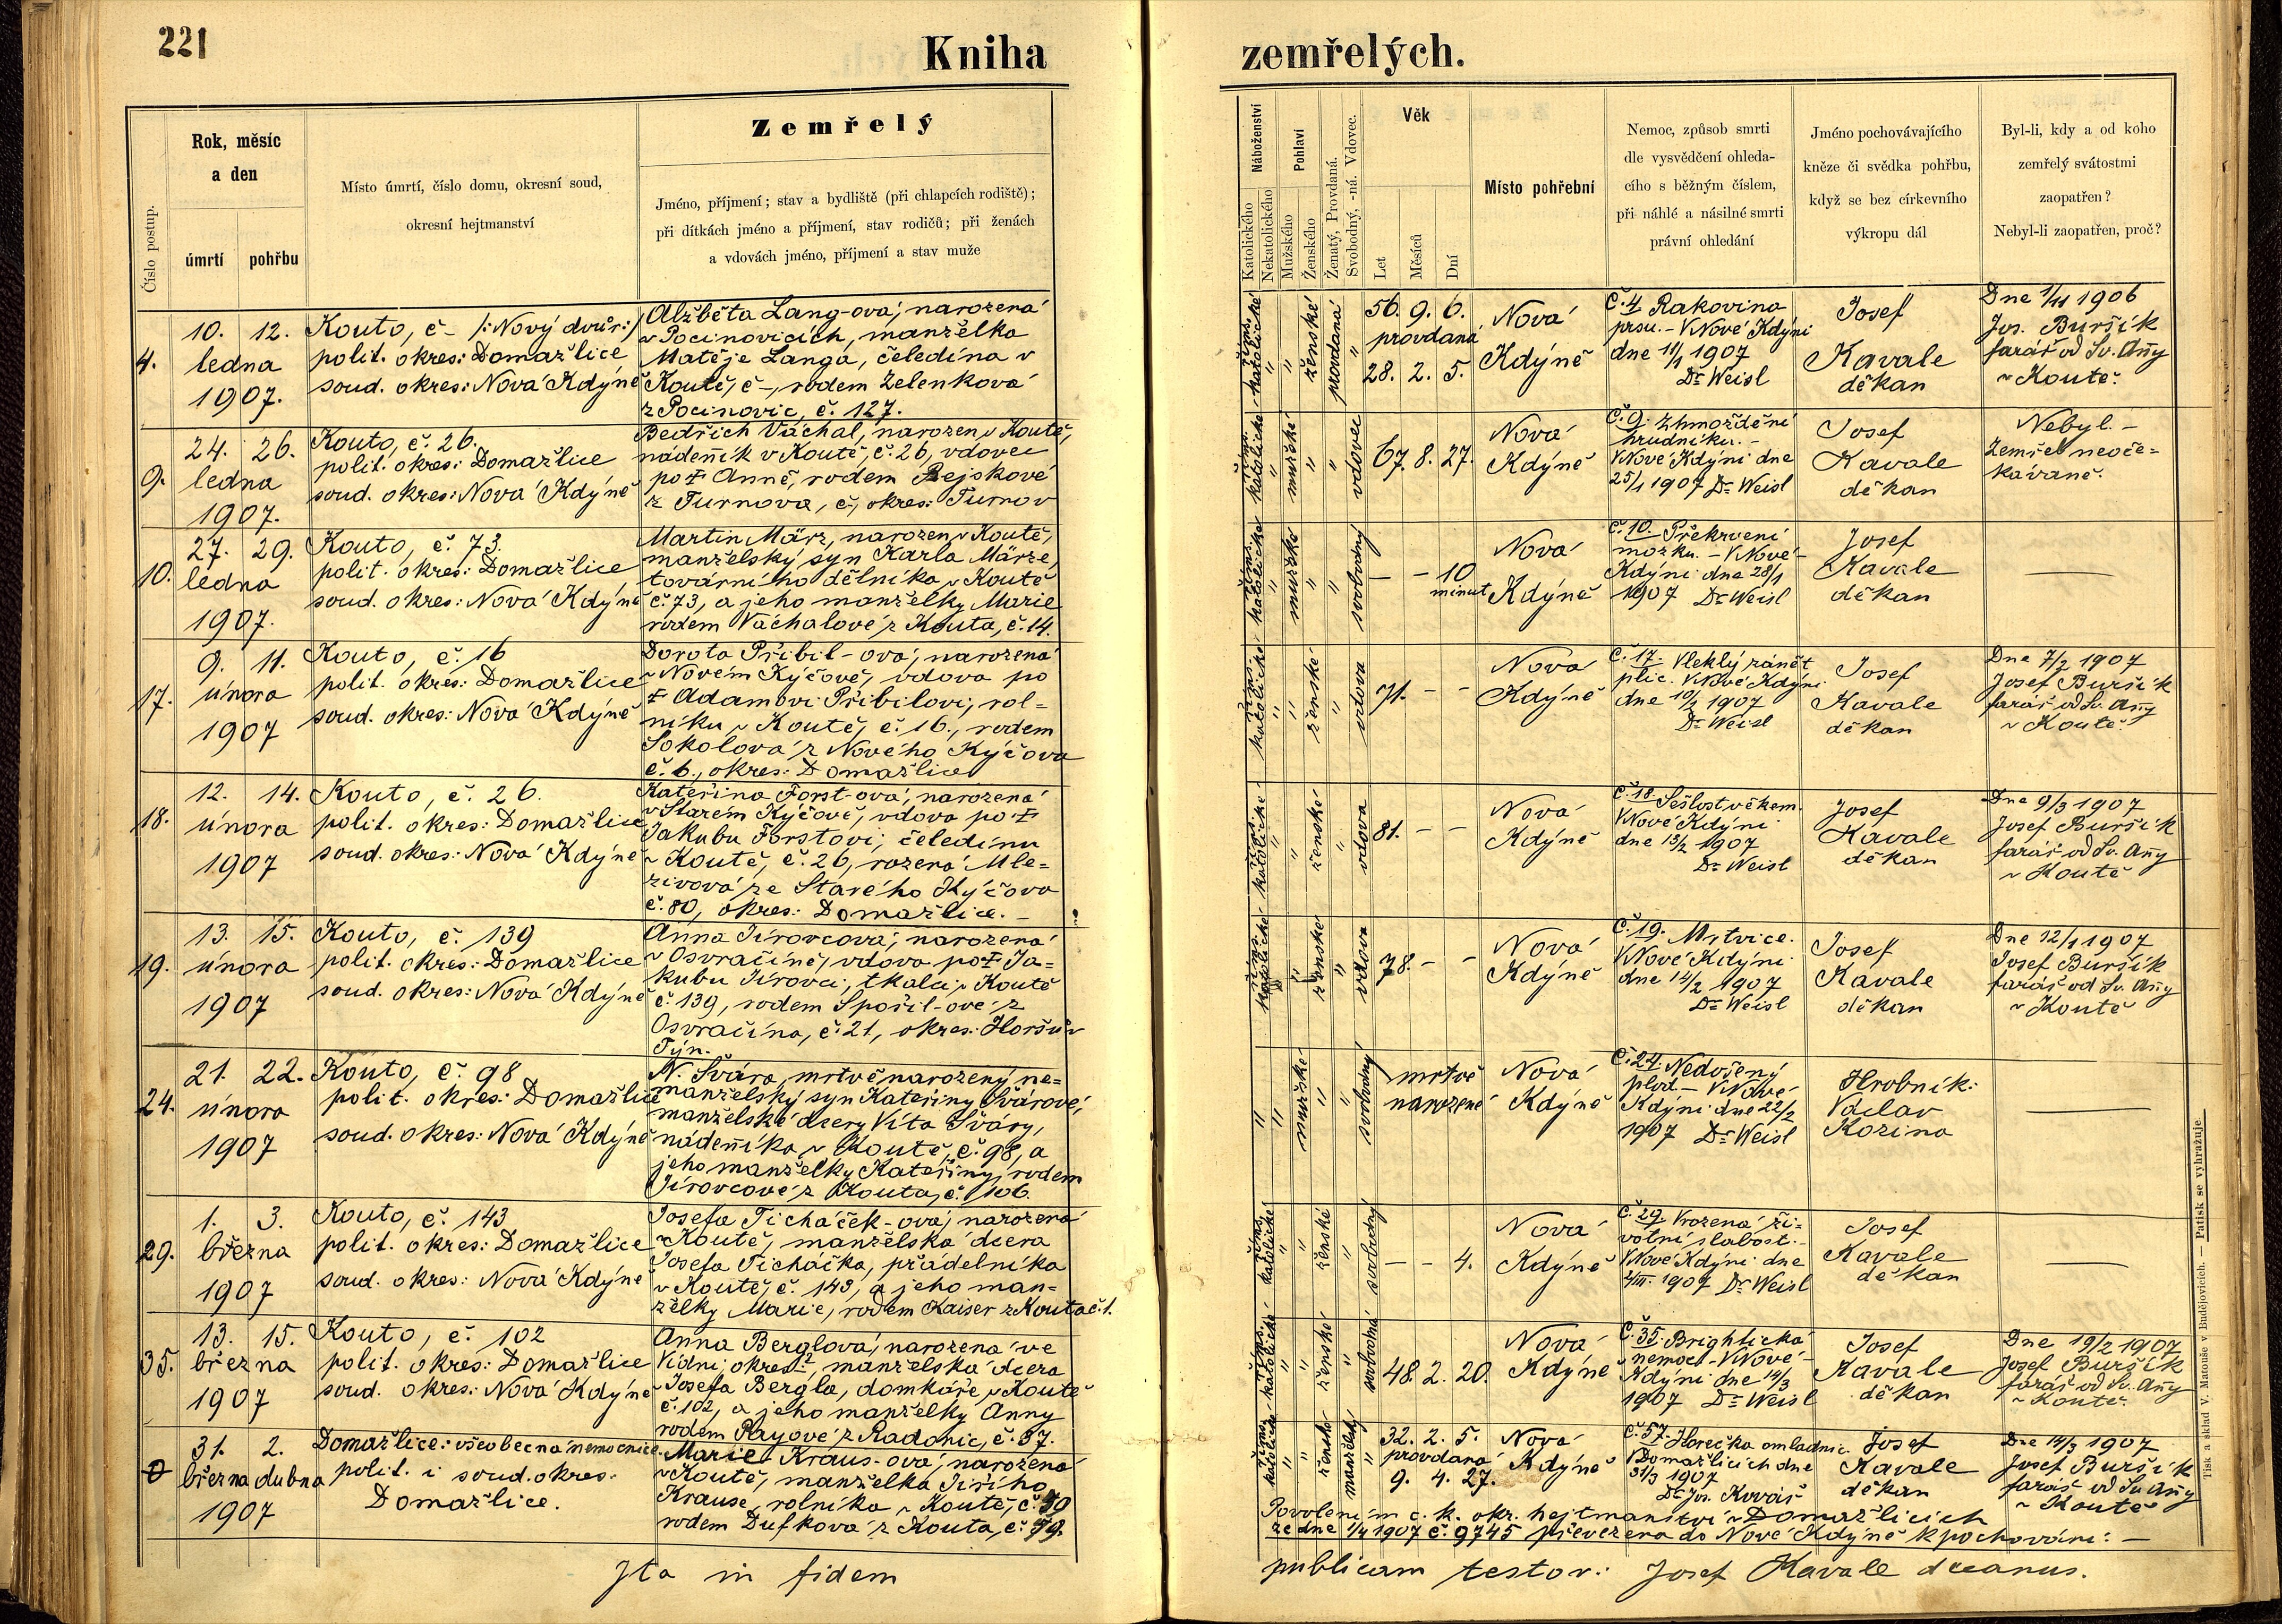 221
Kniha
zemřelých.
Číslo postup.
Rok, měsíc
a den
úmrtí
pohřbu
Místo úmrtí, číslo domu, okresní soud,
okresní hejtmanství
Zemřelý
Jméno, příjmení; stav a bydliště (při chlapcích rodiště);
při dítkách jméno a příjmení, stav rodičů; při ženách
a vdovách jméno, příjmení a stav muže
Náboženství
Katolického
Nekatolického
Pohlaví
Mužského
Ženského
Ženatý, Provdaná.
Svobodný, -ná. Vdovec.
Věk
Let
Měsíců
Dní
Místo pohřební
Nemoc, způsob smrti
dle vysvědčení ohleda-
cího s běžným číslem,
při náhlé a násilné smrti
právní ohledání
Jméno pochovávajícího
kněze či svědka pohřbu,
když se bez církevního
výkropu dál
Byl-li, kdy a od koho
zemřelý svátostmi
zaopatřen?
Nebyl-li zaopatřen, proč?
4.
10. 12.
ledna
1907.
Kouto, č – /: Nový dvůr :/
polit. okres: Domažlice
soud. okres: Nová Kdýně
Alžběta Lang-ová, narozená
v Pocinovicích, manželka
Matěje Langa, čeledína v
Koutě, č –, rodem Zelenková
z Pocinovic, č. 127.
řims. katolické
ženské
provdaná
56. 9. 6.
provdaná
28. 2. 5.
Nová
Kdýně
Č. 4 Rakovina
prsu. – V Nové Kdýni
dne 11/1 1907
Dr Weisl
Josef
Kavale
děkan
Dne 1/11 1906
Jos. Buršík
farář od Sv. Anny
v Koutě.
9.
24. 26.
ledna
1907.
Kouto, č. 26.
polit. okres: Domažlice
soud. okres: Nová Kdýně
Bedřich Váchal, narozen v Koutě,
nádenník v Koutě, č. 26, vdovec
po † Anně, rodem Pejskové
z Turnova, č –, okres: Turnov
řims. katolické
mužské
vdovec
67. 8. 27.
Nová
Kdýně
Č. 9. Zhmoždění
hrudníku. –
V Nové Kdýni dne
25/1 1907 Dr Weisl
Josef
Kavale
děkan
Nebyl. –
Zemřel neoče=
kávaně.
10.
27. 29.
ledna
1907.
Kouto, č. 73.
polit. okres: Domažlice
soud. okres: Nová Kdýně
Martin März, narozen v Koutě,
manželský syn Karla Märze,
továrního dělníka v Koutě
č. 73, a jeho manželky Marie
rodem Váchalové z Kouta, č. 14.
řims. katolické
mužské
svobodný
– – 10
minut
Nová
Kdýně
Č. 10. Překrvení
mozku. – V Nové
Kdýni dne 28/1
1907 Dr Weisl
Josef
Kavale
děkan
17.
9. 11.
února
1907
Kouto, č. 16
polit. okres: Domažlice
soud. okres: Nová Kdýně
Dorota Přibil-ová, narozená
v Novém Kýčově, vdova po
† Adamovi Přibilovi, rol=
níku v Koutě, č. 16., rodem
Sokolová z Nového Kýčova
č. 6., okres: Domažlice
řims. katolické
ženské
vdova
71. – –
Nová
Kdýně
Č. 17. Vleklý zánět
plic. V Nové Kdýni
dne 10/2 1907
Dr Weisl
Josef
Kavale
děkan
Dne 7/2 1907
Josef Buršík
farář od Sv. Anny
v Koutě.
18.
12. 14.
února
1907
Kouto, č. 26.
polit. okres: Domažlice
soud. okres: Nová Kdýně
Kateřina Forst-ová, narozená
v Starém Kýčově, vdova po †
Jakubu Forstovi, čeledínu
v Koutě, č. 26, rozená Mle=
zivová ze Starého Kýčova
č. 80, okres: Domažlice. –
řims. katolické
ženské
vdova
81. – –
Nová
Kdýně
Č. 18. Sešlost věkem.
V Nové Kdýni
dne 13/2 1907
Dr Weisl
Josef
Kavale
děkan
Dne 9/3 1907
Josef Buršík
farář od Sv. Anny
v Koutě
19.
13. 15.
února
1907
Kouto, č. 139
polit. okres: Domažlice
soud. okres: Nová Kdýně
Anna Jírovcová, narozená
v Osvračíně, vdova po † Ja=
kubu Jírovci, tkalci v Koutě
č. 139, rodem Spořil-ové z
Osvračína, č. 21, okres: Horšův
Týn.
řims. katolické
ženské
vdova
78. – –
Nová
Kdýně
Č. 19. Mrtvice.
V Nové Kdýni
dne 14/2 1907
Dr Weisl
Josef
Kavale
děkan
Dne 12/1 1907
Josef Buršík
farář od Sv. Anny
v Koutě
24.
21. 22.
února
1907
Kouto, č. 98
polit. okres: Domažlice
soud. okres: Nová Kdýně
N. Švára, mrtvě narozený ne=
manželský syn Kateřiny Švárové,
manželské dcery Víta Šváry,
nádenníka v Koutě, č. 98, a
jeho manželky Kateřiny, rodem
Jírovcové z Kouta, č. 106.
mužské
svobodný
mrtvě
narozené
Nová
Kdýně
Č. 24. Nedošený
plod – V Nové
Kdýni dne 22/2
1907 Dr Weisl
Hrobník:
Václav
Kozina
29.
1. 3.
března
1907
Kouto, č. 143
polit. okres: Domažlice
soud. okres: Nová Kdýně
Josefa Ticháček-ová, narozená
v Koutě, manželská dcera
Josefa Ticháčka, přádelníka
v Koutě, č. 143, a jeho man=
želky Marie, rodem Kaiser z Kouta č. 1.
řims. katolické
ženské
svobodný
– – 4.
Nová
Kdýně
Č. 29. Vrozená ži=
votní slabost. –
V Nové Kdýni dne
2/III. 1907 Dr Weisl
Josef
Kavale
děkan
35.
13. 15.
března
1907
Kouto, č. 102
polit. okres: Domažlice
soud. okres: Nová Kdýně
Anna Berglová, narozená ve
Vídni, okres: ?, manželská dcera
Josefa Bergla, domkáře v Koutě
č. 102, a jeho manželky Anny
rodem Payové z Radonic, č. 37.
řims. katolické
ženské
svobodná
48. 2. 20.
Nová
Kdýně
Č. 35. Brightická
nemoc – V Nové
Kdýni dne 14/3
1907 Dr Weisl
Josef
Kavale
děkan
Dne 19/2 1907
Josef Buršík
farář od Sv. Anny
v Koutě.
0
31. 2.
března dubna
1907
Domažlice: všeobecná nemocnice.
polit. i soud. okres:
Domažlice.
Marie Kraus-ová, narozená
v Koutě, manželka Jiřího
Krause, rolníka v Koutě, č. 50
rodem Dufková z Kouta, č. 79.
řims. katolické
ženské
manželský
32. 2. 5.
provdaná
9. 4. 27.
Nová
Kdýně
Č. 57. Horečka omladnic.
V Domažlicích dne
31/3 1907
Dr Jos. Kovář
Josef
Kavale
děkan
Dne 14/3 1907
Josef Buršík
farář od Sv. Anny
v Koutě
Povolením c. k. okr. hejtmanství v Domažlicích
ze dne 1/4 1907 č. 9745 převezena do Nové Kdýně k pochování: –
Ita in fidem
publicam testor: Josef Kavale decanus.
Tisk a sklad V. Matouše v Budějovicích. — Patisk se vyhražuje